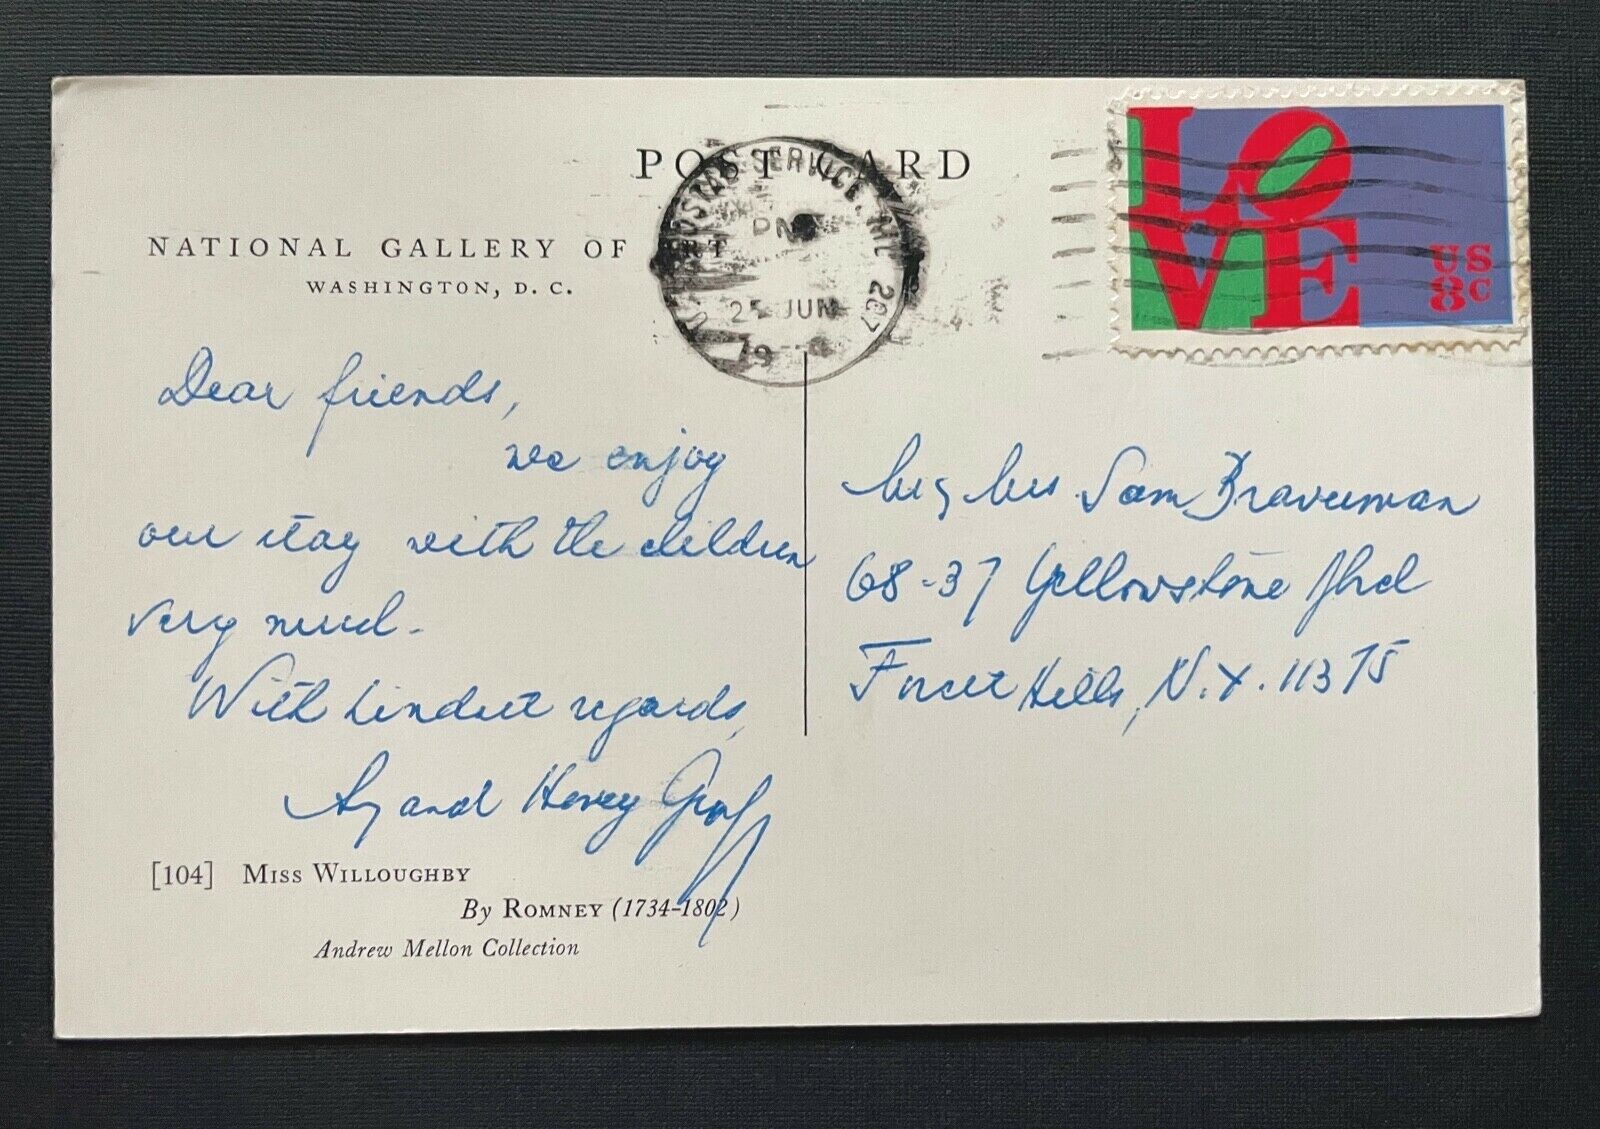 POST CARD
NATIONAL GALLERY OF ART
WASHINGTON, D. C.
POSTAL SERVICE, MD. 207
PM
JUN
19
LOVE
US
8c
Dear friends,
we enjoy
our stay with the children
very much.
With kindest regards,
and Graf
Sam Braverman
68-37 Yellowstone Blvd
Forest Hills, N.Y. 11375
[104] MISS WILLOUGHBY
By ROMNEY (1734-1802)
Andrew Mellon Collection